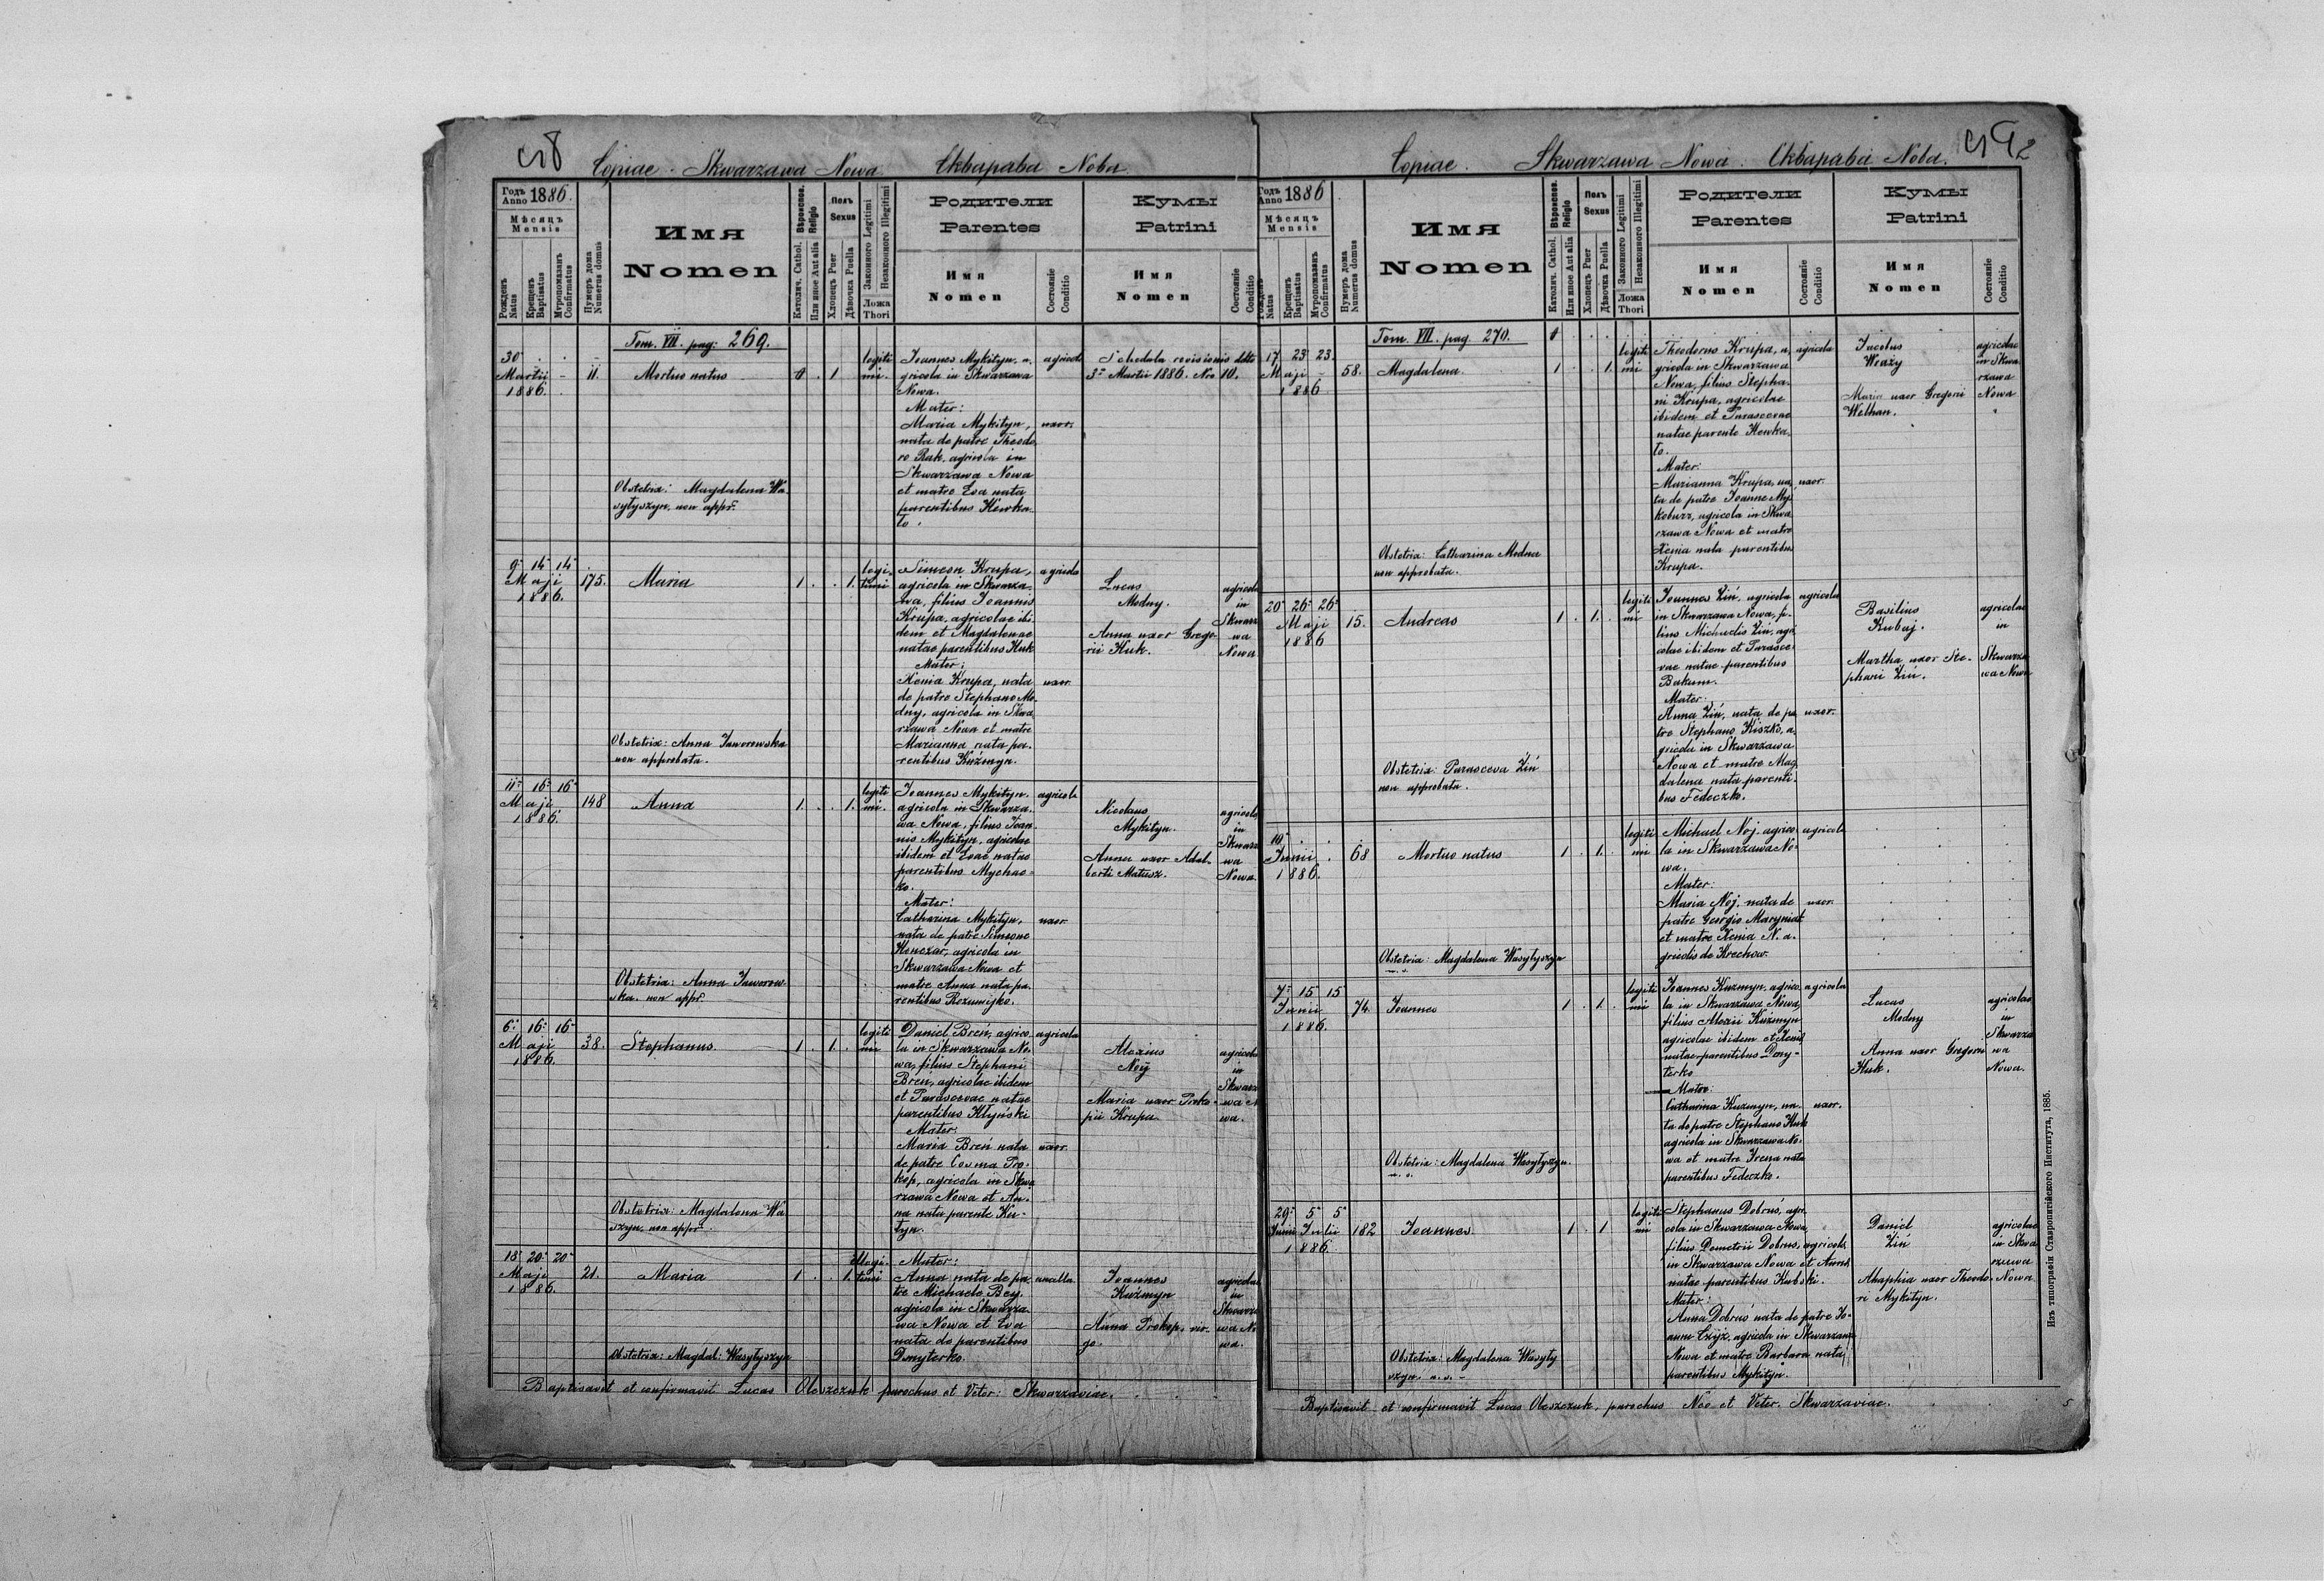 Copiae. Skwarzawa Nowa. Скварава Нова.
Годъ Anno 1886.
Мѣсяцъ
Mensis
Рожденъ Natus
Крещенъ Baptisatus
Мѵропомазанъ Confirmatus
Нумеръ дома Numerus domus
Имя
Nomen
Вѣроиспов. Religio
Католич. Cathol.
Или иное Aut alia
Полъ
Sexus
Хлопецъ Puer
Дѣвочка Puella
Законного Legitimi
Незаконного Illegitimi
Ложа
Thori
Родители
Parentes
Имя
Nomen
Состояніе Conditio
Кумы
Patrini
Имя
Nomen
Состояніе Conditio
Tom. VII. pag: 269.
30
Martii
1886.
11
Mortuo natus
1
legiti
mi.
Joannes Mykityn, a-
gricola in Skwarzawa
Nowa.
Mater:
Maria Mykityn,
nata de patre Theodo
ro Rak, agricola in
Skwarzawa Nowa
et matre Eva nata
parentibus Hewka
to.
agricola
uxor.
Schedula revisionis ddto
3 Martii 1886. Nro 10.
Obstetrix: Magdalena Wa
sylyszyn, non appr.
9 14 14
Maji
1886.
175.
Maria
1. 1.
legi-
timi
Simeon Krupa,
agricola in Skwarza-
wa, filius Joannis
Krupa, agricolae ibi
dem et Magdalenae
natae parentibus Huk
Mater:
Xenia Krupa, nata
de patre Stephano Mo-
dny, agricola in Skwa
rzawa Nowa et matre
Marianna nata pa-
rentibus Kuźmyn.
agricola
uxor
Lucas
Modny.
Anna uxor Grego-
rii Huk.
agricola
in
Skwarz
wa
Nowa
Obstetrix: Anna Jaworowska
non approbata.
11 16 16
Maji
1886.
148
Anna
1. 1.
legiti
mi.
Joannes Mykityn.
agricola in Skwarza-
wa Nowa, filius Joan-
nis Mykityn, agricolae
ibidem et Evae natae
parentibus Mychas-
ko.
Mater:
Catharina Mykityn,
nata de patre Simeone
Honczar, agricola in
Skwarzawa Nowa et
matre Anna nata pa-
rentibus Rozumijko.
agricola
uxor
Nicolaus
Mykityn.
Anna uxor Adal-
berti Matusz.
agricola
in
Skwarz
wa
Nowa.
Obstetrix: Anna Jaworow-
ska. non appr.
6 16 16
Maji
1886.
38.
Stephanus.
1. 1.
legiti
mi
Daniel Breń, agrico-
la in Skwarzawa No-
wa, filius Stephani
Breń, agricolae ibidem
et Parascevae natae
parentibus Kłyński
Mater:
Maria Breń nata
de patre Cosma Pro-
kop, agricola in Skwa
rzawa Nowa et An-
na nata parente Ku-
tyn.
agricola
uxor.
Alexius
Noij
Maria uxor Proko-
pii Krupa.
agricola
in
Skwarz
wa N
wa.
Obstetrix: Magdalena Wa
szyn, non appr.
18 20 20
Maji
1886.
21.
Maria
1 1.
illegi-
timi
Mater:
Anna nata de pa-
tre Michaele Bey,
agricola in Skwarza-
wa Nowa et Eva
nata de parentibus
Dmyterko.
ancilla.
Joannes
Kuźmyn
Anna Prokop, vir-
go.
agricolae
in
Skwarza
wa No
wa.
Obstetrix: Magdal: Wasylyszyn
Baptisavit et confirmavit Lucas Oleszczuk parochus et Veter: Skwarzaviae.
Copiae. Skwarzawa Nowa. Скварава Нова. 2
Годъ Anno 1886
Мѣсяцъ
Mensis
Рожденъ Natus
Крещенъ Baptisatus
Мѵропомазанъ Confirmatus
Нумеръ дома Numerus domus
Имя
Nomen
Вѣроиспов. Religio
Католич. Cathol.
Или иное Aut alia
Полъ
Sexus
Хлопецъ Puer
Дѣвочка Puella
Законного Legitimi
Незаконного Illegitimi
Ложа
Thori
Родители
Parentes
Имя
Nomen
Состояніе Conditio
Кумы
Patrini
Имя
Nomen
Состояніе Conditio
Tom. VII. pag. 270.
17 23 23.
Maji
1886
58.
Magdalena.
1. 1.
legiti
mi
Theodorus Krupa, a
gricola in Skwarzawa
Nowa, filius Stepha-
ni Krupa, agricolae
ibidem et Parascevae
natae parente Hewka
to.
Mater:
Marianna Krupa, na
ta de patre Joanne My
agricola in Skwa
rzawa Nowa et matre
Xenia nata parentibus
Krupa.
agricola
uxor.
Jacobus
Wraży
Maria uxor Gregorii
Welhan.
agricolae
in Skwa
rzawa
Nowa
Obstetrix: Catharina Modna
non approbata.
20 26 26
Maji
1886
15.
Andreas
1. 1.
legiti
mi
Joannes Ziń, agricola
in Skwarzawa Nowa, fi-
lius Michaelis Ziń, agri
colae ibidem et Parasce-
vae natae parentibus
Bakum.
Mater:
Anna Ziń, nata de pa
tre Stephano Kiszko, a-
gricola in Skwarzawa
Nowa et matre Mag
dalena nata parenti-
bus Fedeczko.
agricola
uxor.
Basilius
Kubaj.
Martha uxor Ste-
phani Ziń.
agricolae
in
Skwarza
wa Nowa
Obstetrix: Parasceva Ziń
non approbata.
10
Junii
1886.
68
Mortuo natus
1 1.
legiti
mi
Michael Noj, agrico-
la in Skwarzawa No-
wa.
Mater:
Maria Noj, nata de
patre Georgio Maryniak
et matre Xenia N. a-
gricolis de Krechow.
agricola
uxor.
Obstetrix: Magdalena Wasylyszyn
7 15 15
Junii
1886.
74.
Joannes
1 1.
legiti
mi
Joannes Kuzmyn, agrico-
la in Skwarzawa Nowa,
filius Alexii Kuźmyn
agricolae ibidem et Xenia
natae parentibus Dmy-
terko
Mater:
Catharina Kuzmyn, na-
ta de patre Stephano Huk
agricola in Skwarzawa No-
wa et matre Irena nata
parentibus Fedeczko.
agricola
uxor.
Lucas
Modny
Anna uxor Gregorii
Huk.
agricolae
in
Skwarza
wa
Nowa.
Obstetrix: Magdalena Wasylyszyn.
29 5 5
Junii Julii
1886
182
Joannes.
1. 1
legiti
mi
Stephanus Dobruś, agri-
cola in Skwarzawa Nowa,
filius Demetrii Dobruś, agricola
in Skwarzawa Nowa et Anna
natae parentibus Kubski.
Mater:
Anna Dobruś nata de patre Jo-
anne Czyż, agricola in Skwarzawa
Nowa et matre Barbara nata
parentibus Mykityn.
Daniel
Ziń
Ahaphia uxor Theodo-
ri Mykityn.
agricolae
in Skwa
rzawa
Nowa
Obstetrix: Magdalena Wasyly
szyn. n. a. -
Baptisavit et confirmavit Lucas Oleszczuk, parochus Nov et Veter. Skwarzaviae.
Изъ типографіи Ставропигійского Института, 1885.